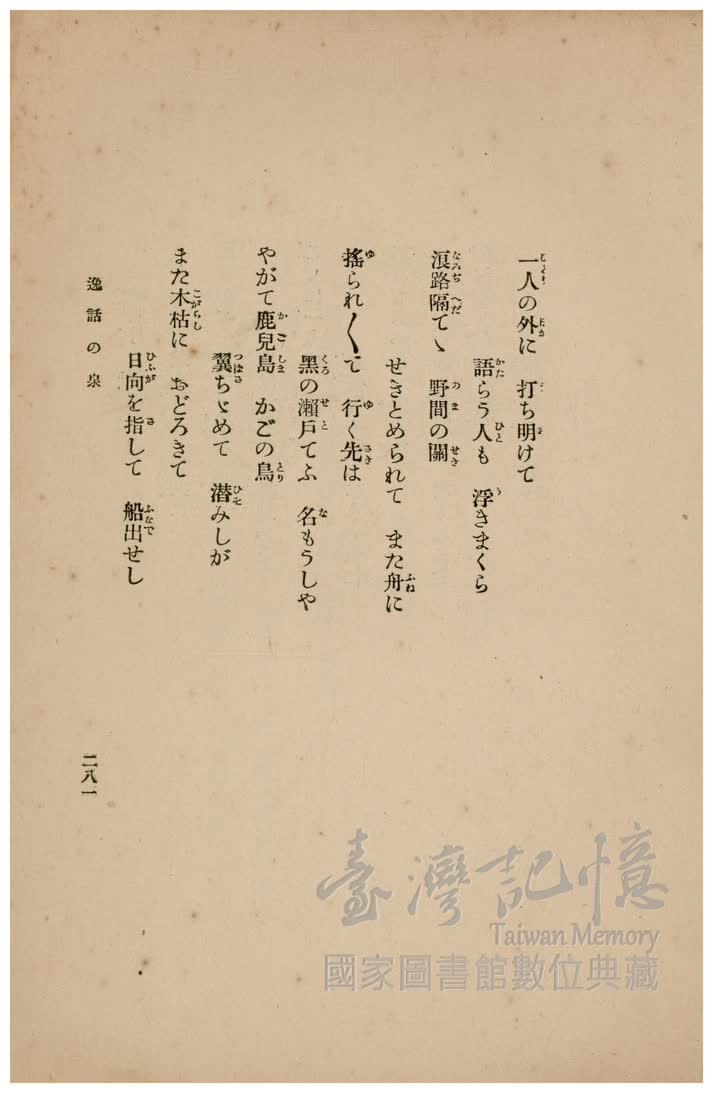 一人の外に　打ち明けて
語らう人も　浮きまくら
浪路隔てゝ　野間の關
せきとめられて　また舟に
搖られ〱て　行く先は
黑の瀨戸てふ　名もうしや
やがて鹿兒島　かごの鳥
翼ちゞめて　潜みしが
また木枯に　おどろきて
日向を指して　船出せし
逸話の泉
二八一
臺灣記憶
Taiwan Memory
國家圖書館數位典藏